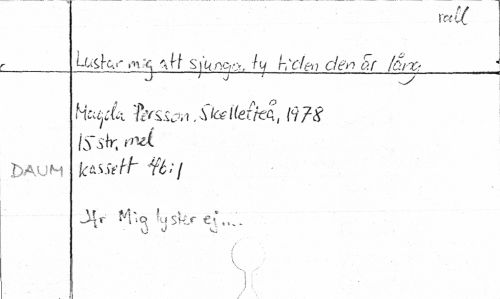 vall
Lustar mig att sjunga, ty tiden den är lång
Magda Persson, Skellefteå, 1978
15 str, mel
DAUM kassett 46:1
Jfr Mig lyster ej....